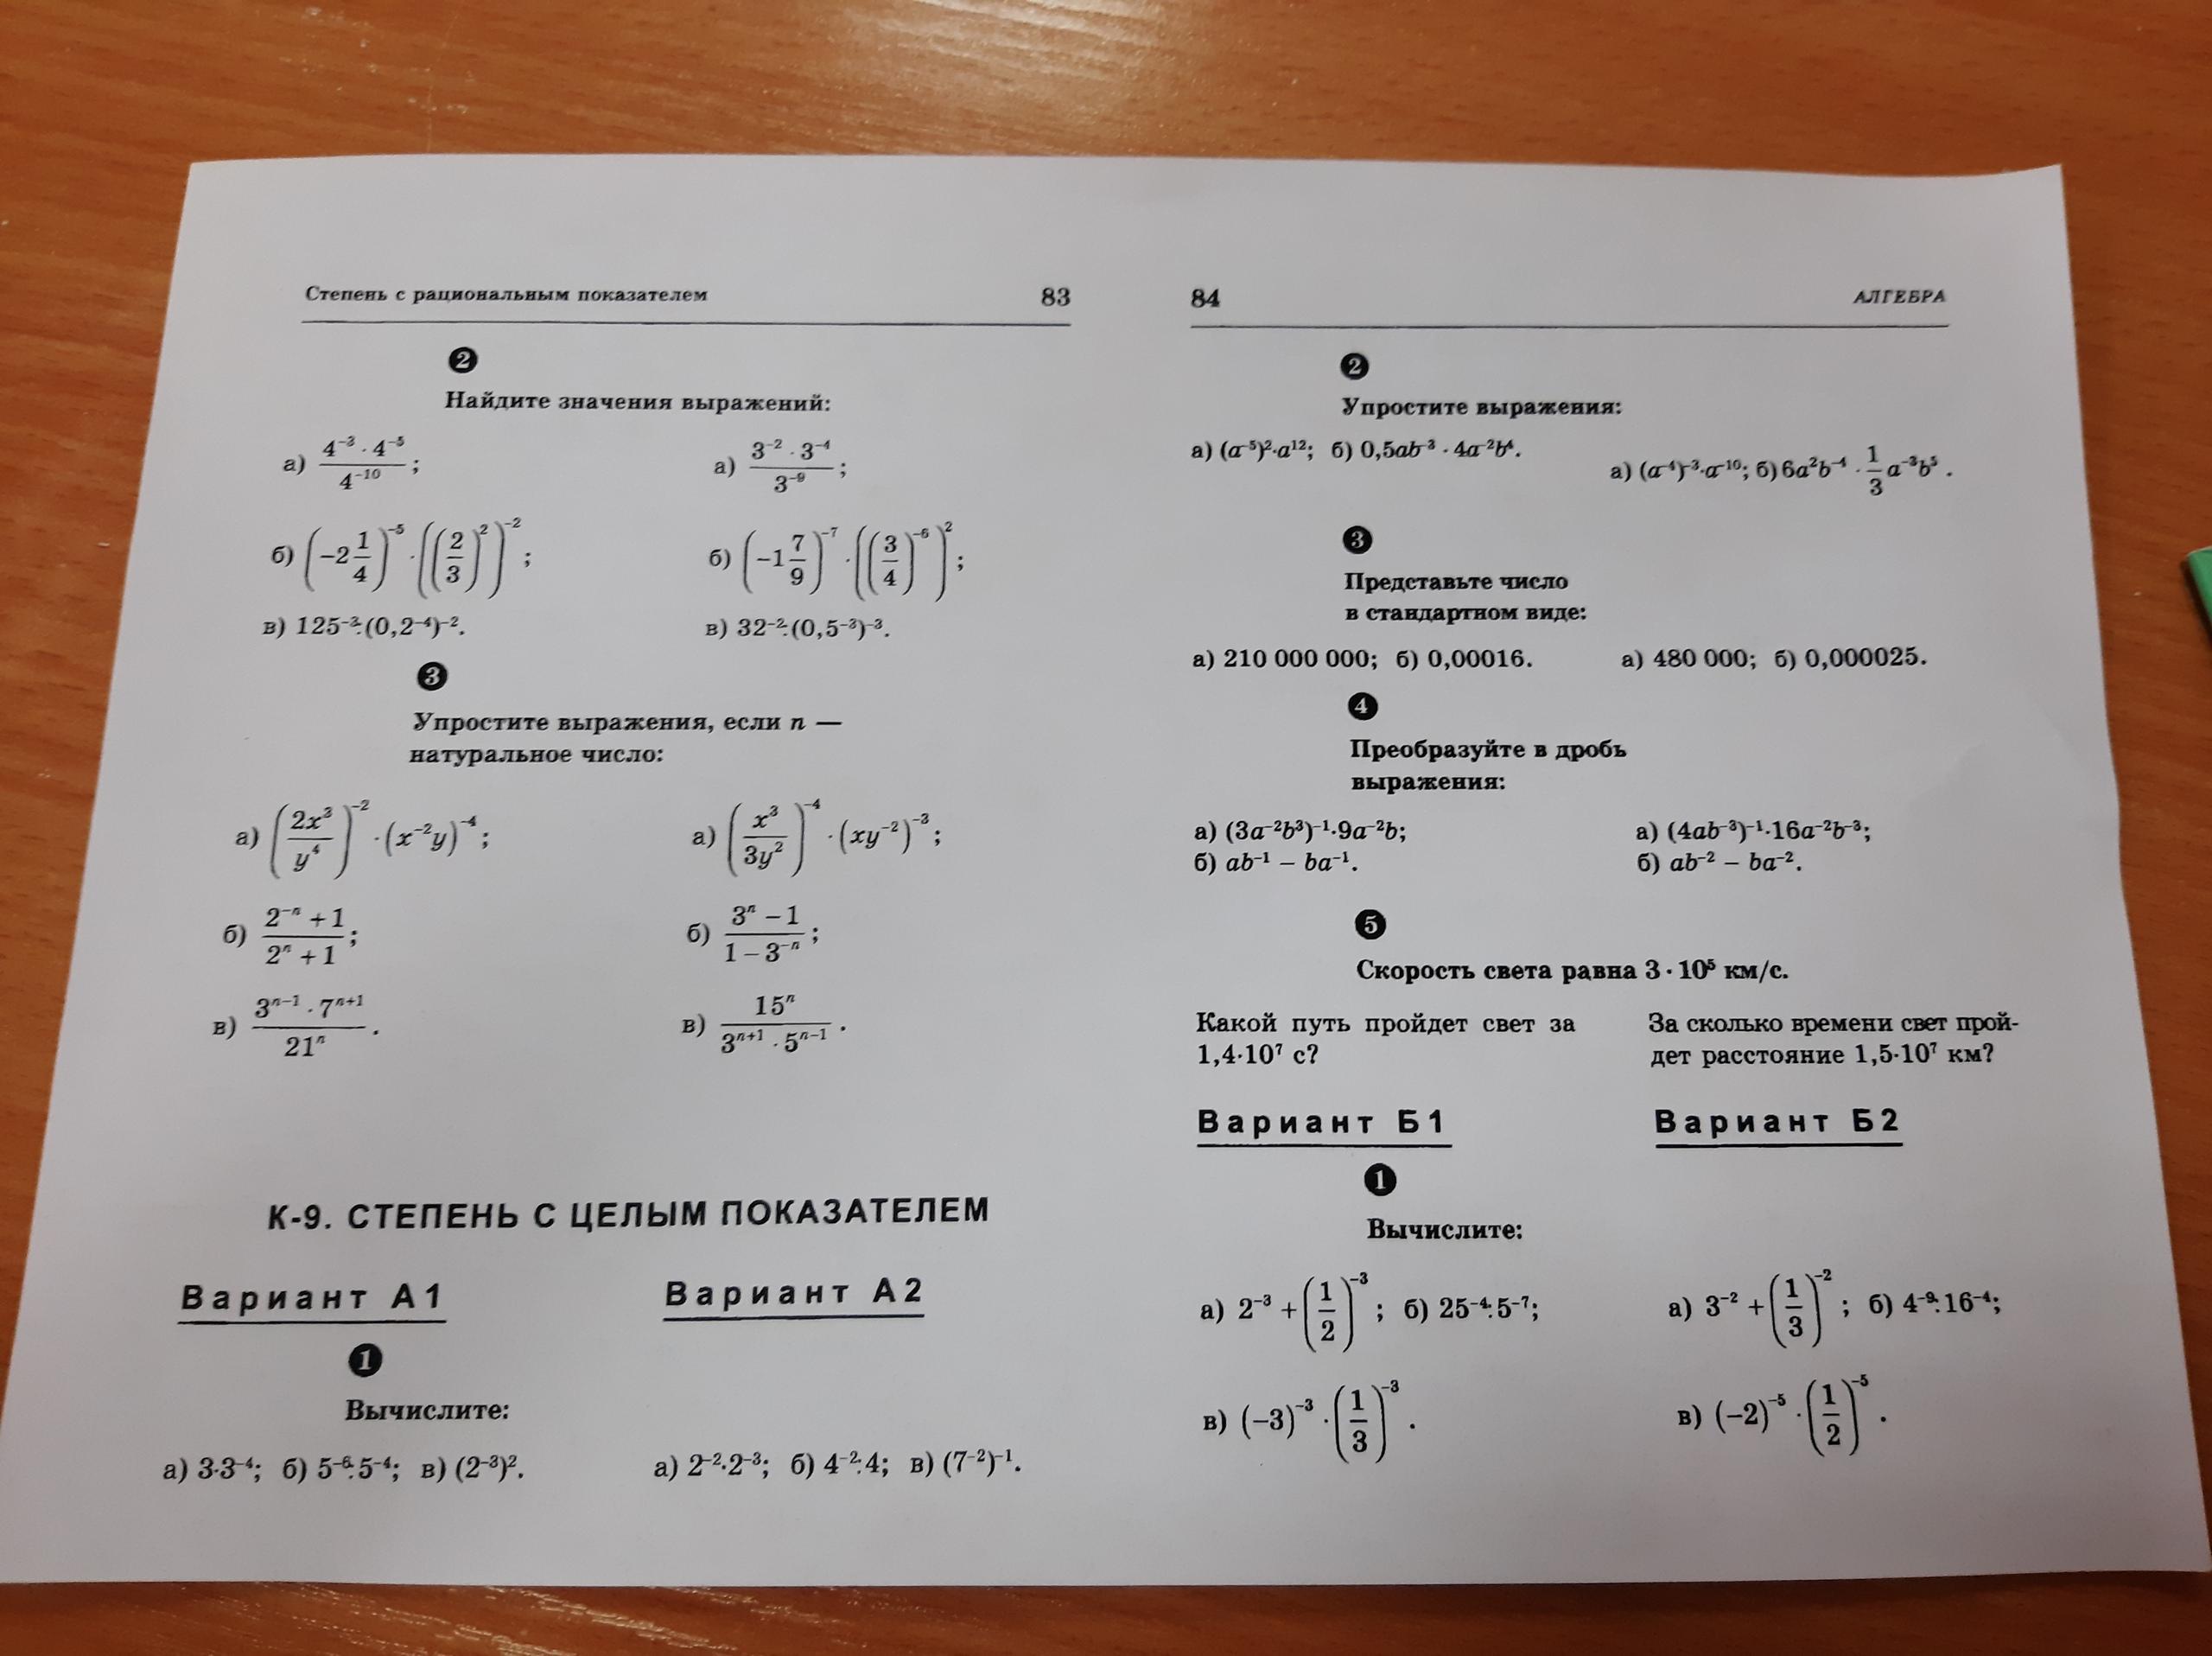 Степень с рациональным показателем 83
❷
Найдите значения выражений:
а) (4⁻³ · 4⁻⁵)/4⁻¹⁰; а) (3⁻² · 3⁻⁴)/3⁻⁹;
б) (−2 1/4)⁻⁵ · ((2/3)²)⁻²; б) (−1 7/9)⁻⁷ · ((3/4)⁻⁶)²;
в) 125⁻³:(0,2⁻⁴)⁻². в) 32⁻²:(0,5⁻³)⁻³.
❸
Упростите выражения, если n —
натуральное число:
а) (2x³/y⁴)⁻² · (x⁻²y)⁻⁴; а) (x³/3y²)⁻⁴ · (xy⁻²)⁻³;
б) (2⁻ⁿ + 1)/(2ⁿ + 1); б) (3ⁿ − 1)/(1 − 3⁻ⁿ);
в) (3ⁿ⁻¹ · 7ⁿ⁺¹)/21ⁿ. в) 15ⁿ/(3ⁿ⁺¹ · 5ⁿ⁻¹).
К-9. СТЕПЕНЬ С ЦЕЛЫМ ПОКАЗАТЕЛЕМ
Вариант А1 Вариант А2
❶
Вычислите:
а) 3·3⁻⁴; б) 5⁻⁶:5⁻⁴; в) (2⁻³)². а) 2⁻²·2⁻³; б) 4⁻²:4; в) (7⁻²)⁻¹.
84 АЛГЕБРА
❷
Упростите выражения:
а) (a⁻⁵)²·a¹²; б) 0,5ab⁻³ · 4a⁻²b⁴. а) (a⁻⁴)⁻³·a⁻¹⁰; б) 6a²b⁻⁴ · 1/3 a⁻³b⁵.
❸
Представьте число
в стандартном виде:
а) 210 000 000; б) 0,00016. а) 480 000; б) 0,000025.
❹
Преобразуйте в дробь
выражения:
а) (3a⁻²b³)⁻¹·9a⁻²b; а) (4ab⁻³)⁻¹·16a⁻²b⁻³;
б) ab⁻¹ − ba⁻¹. б) ab⁻² − ba⁻².
❺
Скорость света равна 3 · 10⁵ км/с.
Какой путь пройдет свет за За сколько времени свет прой-
1,4·10⁷ с? дет расстояние 1,5·10⁷ км?
Вариант Б1 Вариант Б2
❶
Вычислите:
а) 2⁻³ + (1/2)⁻³; б) 25⁻⁴:5⁻⁷; а) 3⁻² + (1/3)⁻²; б) 4⁻⁹:16⁻⁴;
в) (−3)⁻³ · (1/3)⁻³. в) (−2)⁻⁵ · (1/2)⁻⁵.